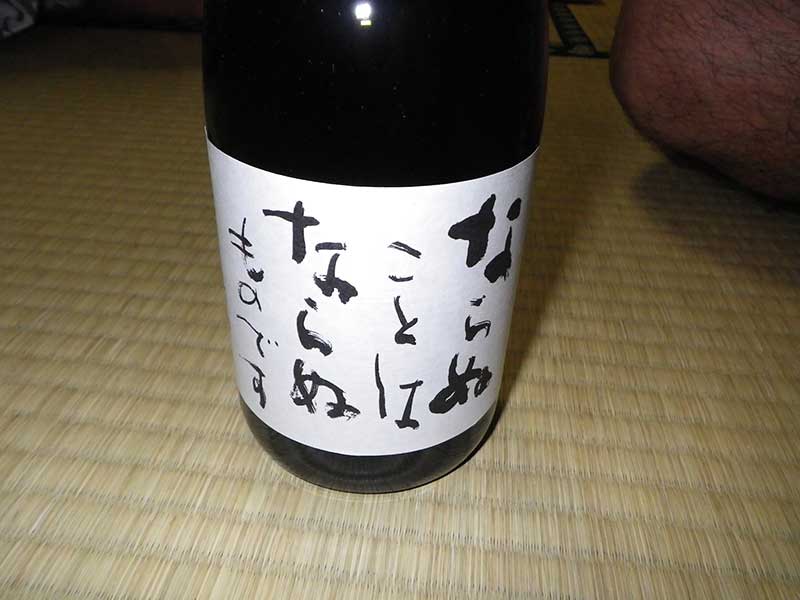 ならぬ
ことは
ならぬ
ものです